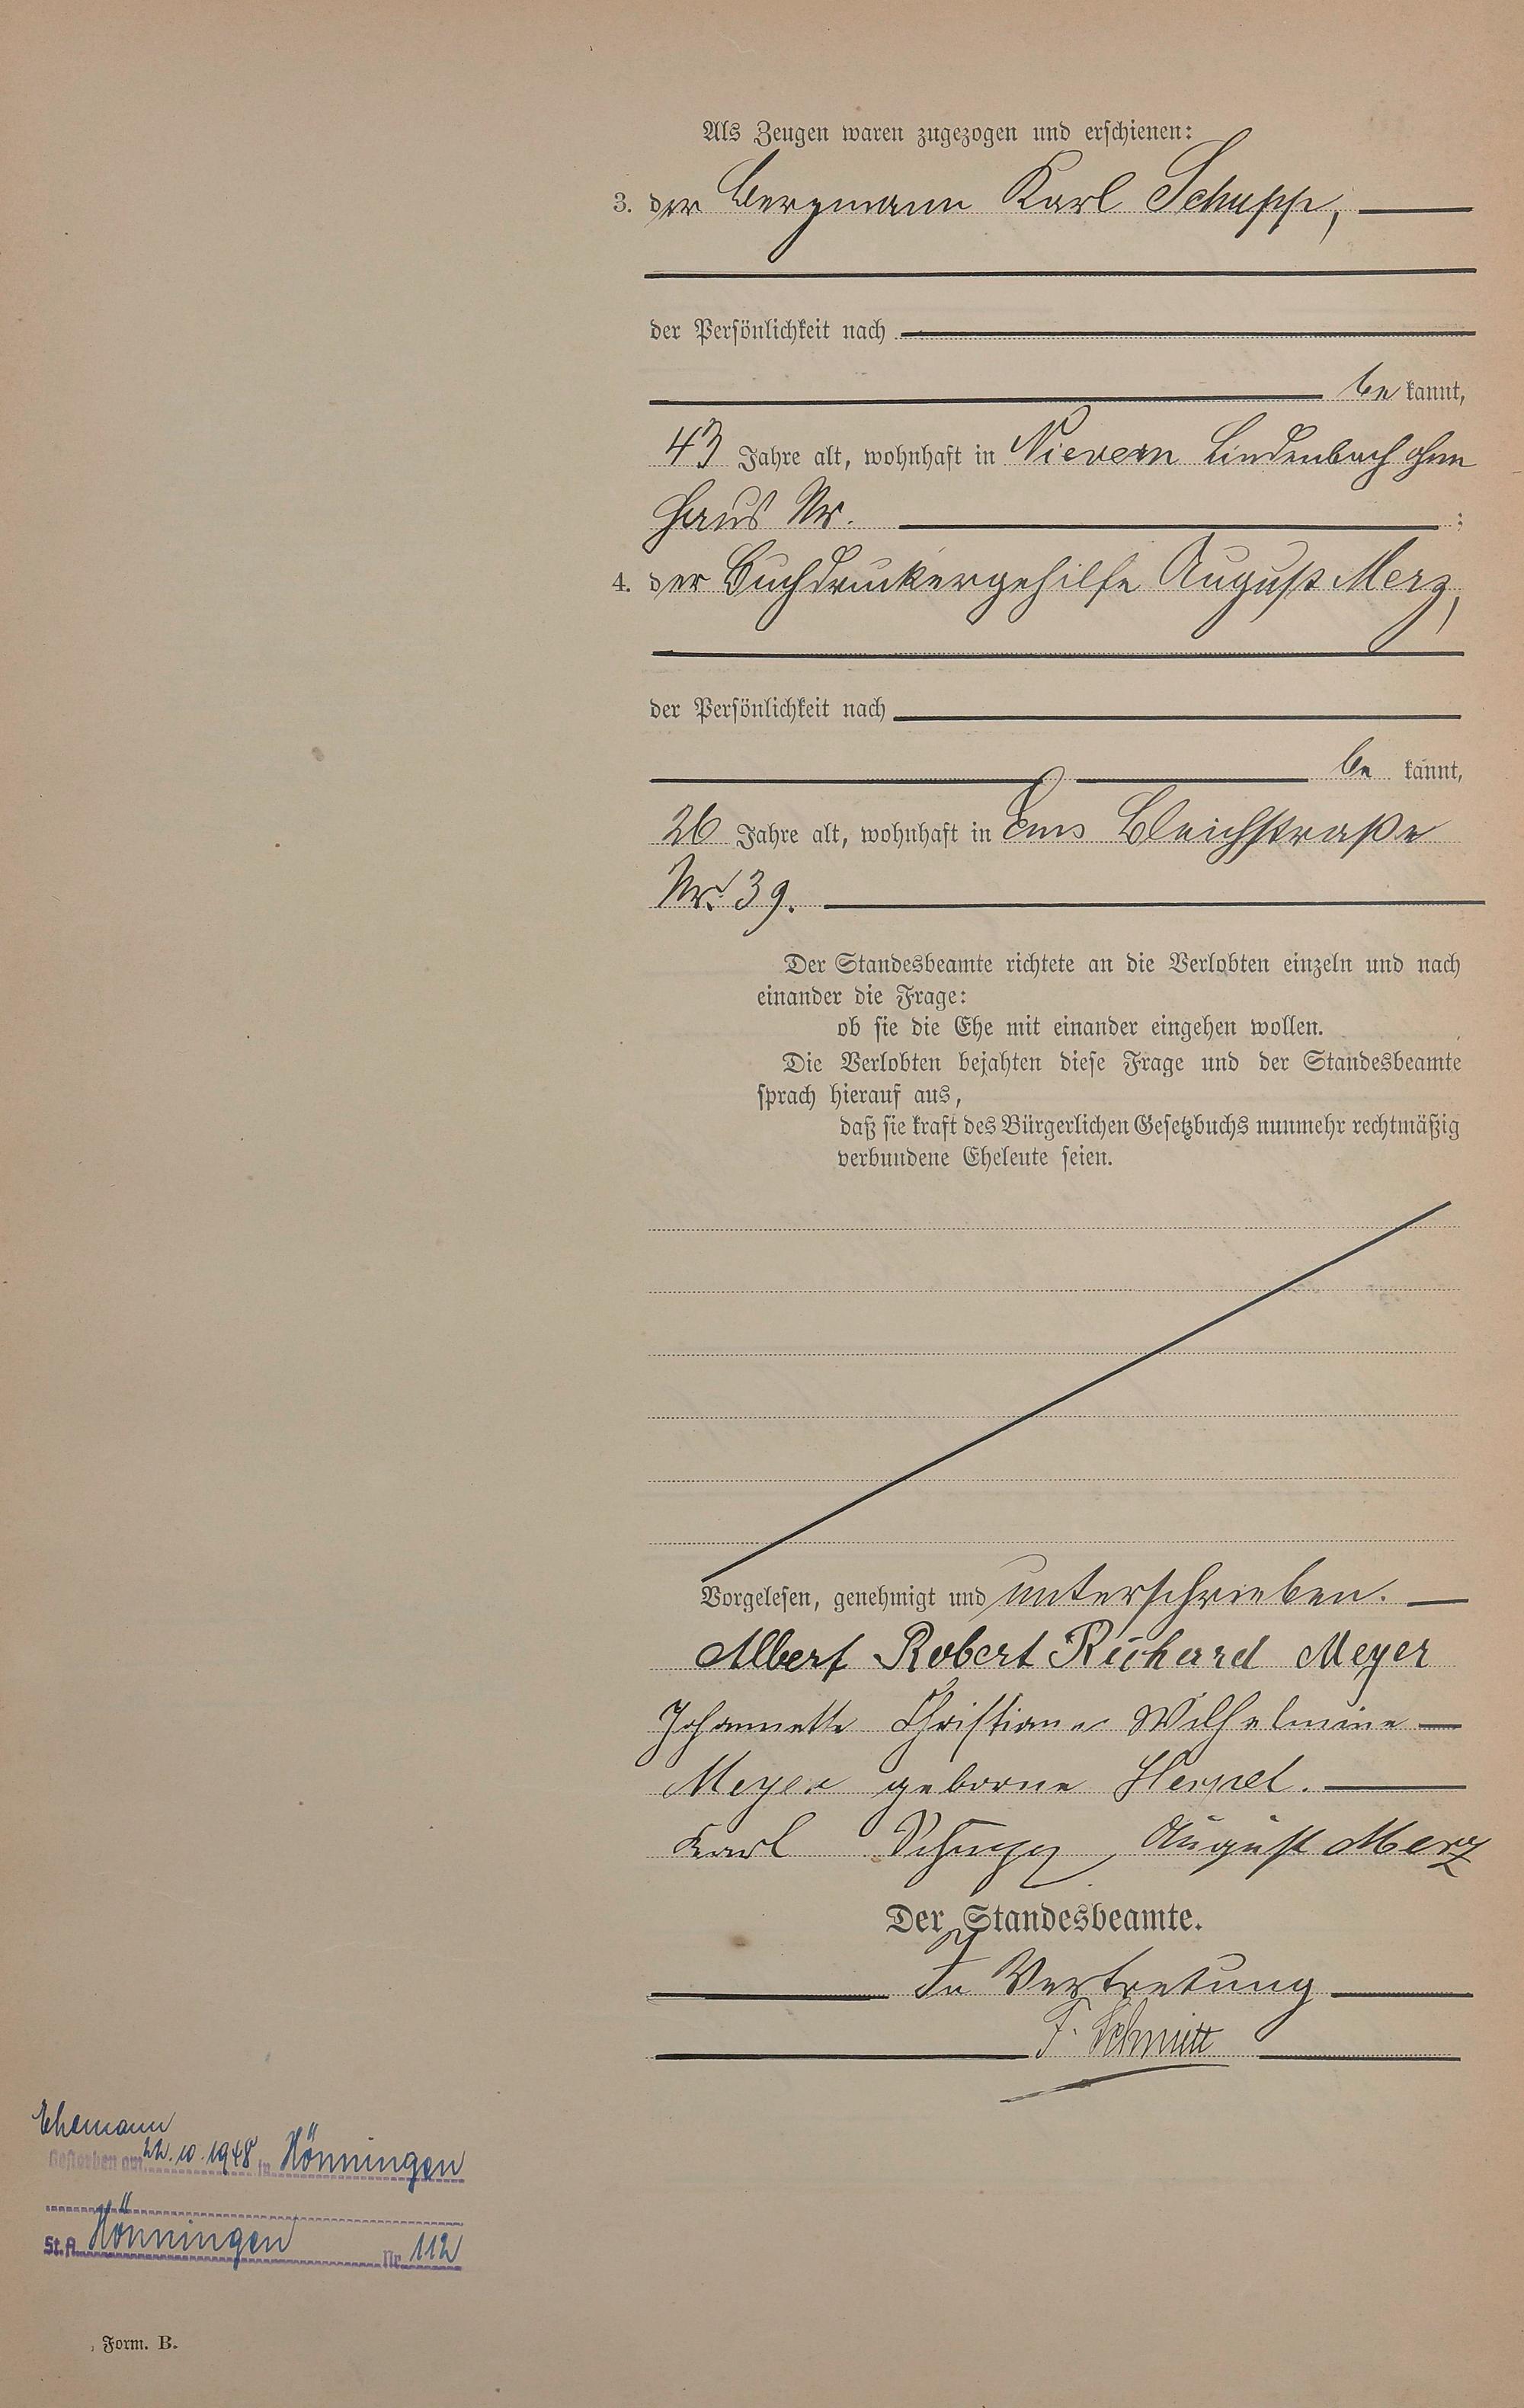 Als Zeugen waren zugezogen und erschienen:
3. der Bergmann Karl Schupp,
der Persönlichkeit nach
be kannt,
43 Jahre alt, wohnhaft in Nievern Lindenbach ohne
Haus Nr. ;
4. der Buchdruckergehilfe August Merz,
der Persönlichkeit nach
be kannt,
26 Jahre alt, wohnhaft in Ems Bleichstraße
Nr. 39.
Der Standesbeamte richtete an die Verlobten einzeln und nach
einander die Frage:
ob sie die Ehe mit einander eingehen wollen.
Die Verlobten bejahten diese Frage und der Standesbeamte
sprach hierauf aus,
daß sie kraft des Bürgerlichen Gesetzbuchs nunmehr rechtmäßig
verbundene Eheleute seien.
Vorgelesen, genehmigt und unterschrieben.
Albert Robert Richard Meyer
Johannette Christiane Wilhelmine
Meyer geborne Heypel.
Karl Schupp, August Merz
Der Standesbeamte.
In Vertretung
F. Schmitt
Ehemann
Gestorben am 22.10.1948 in Hönningen
St.A. Hönningen Nr. 112
Form. B.